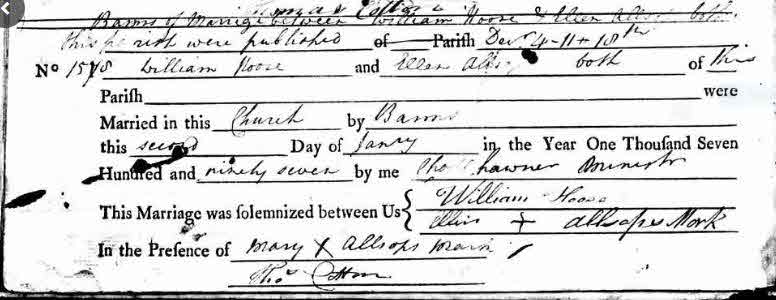 Thomas Cotton
Banns of Marrige between William Hoose & Ellen Allsop both
this parish were published of Parish Decr 4-11 + 18th
No 1578 William Hoose and Ellen Allsop both of this
Parish were
Married in this Church by Banns
this second Day of Janry in the Year One Thousand Seven
Hundred and ninety seven by me Minister
This Marriage was solemnized between Us William Hoose
Ellin + Allsopes Mark
In the Presence of Mary X Allsops Mark
Thos Cotton